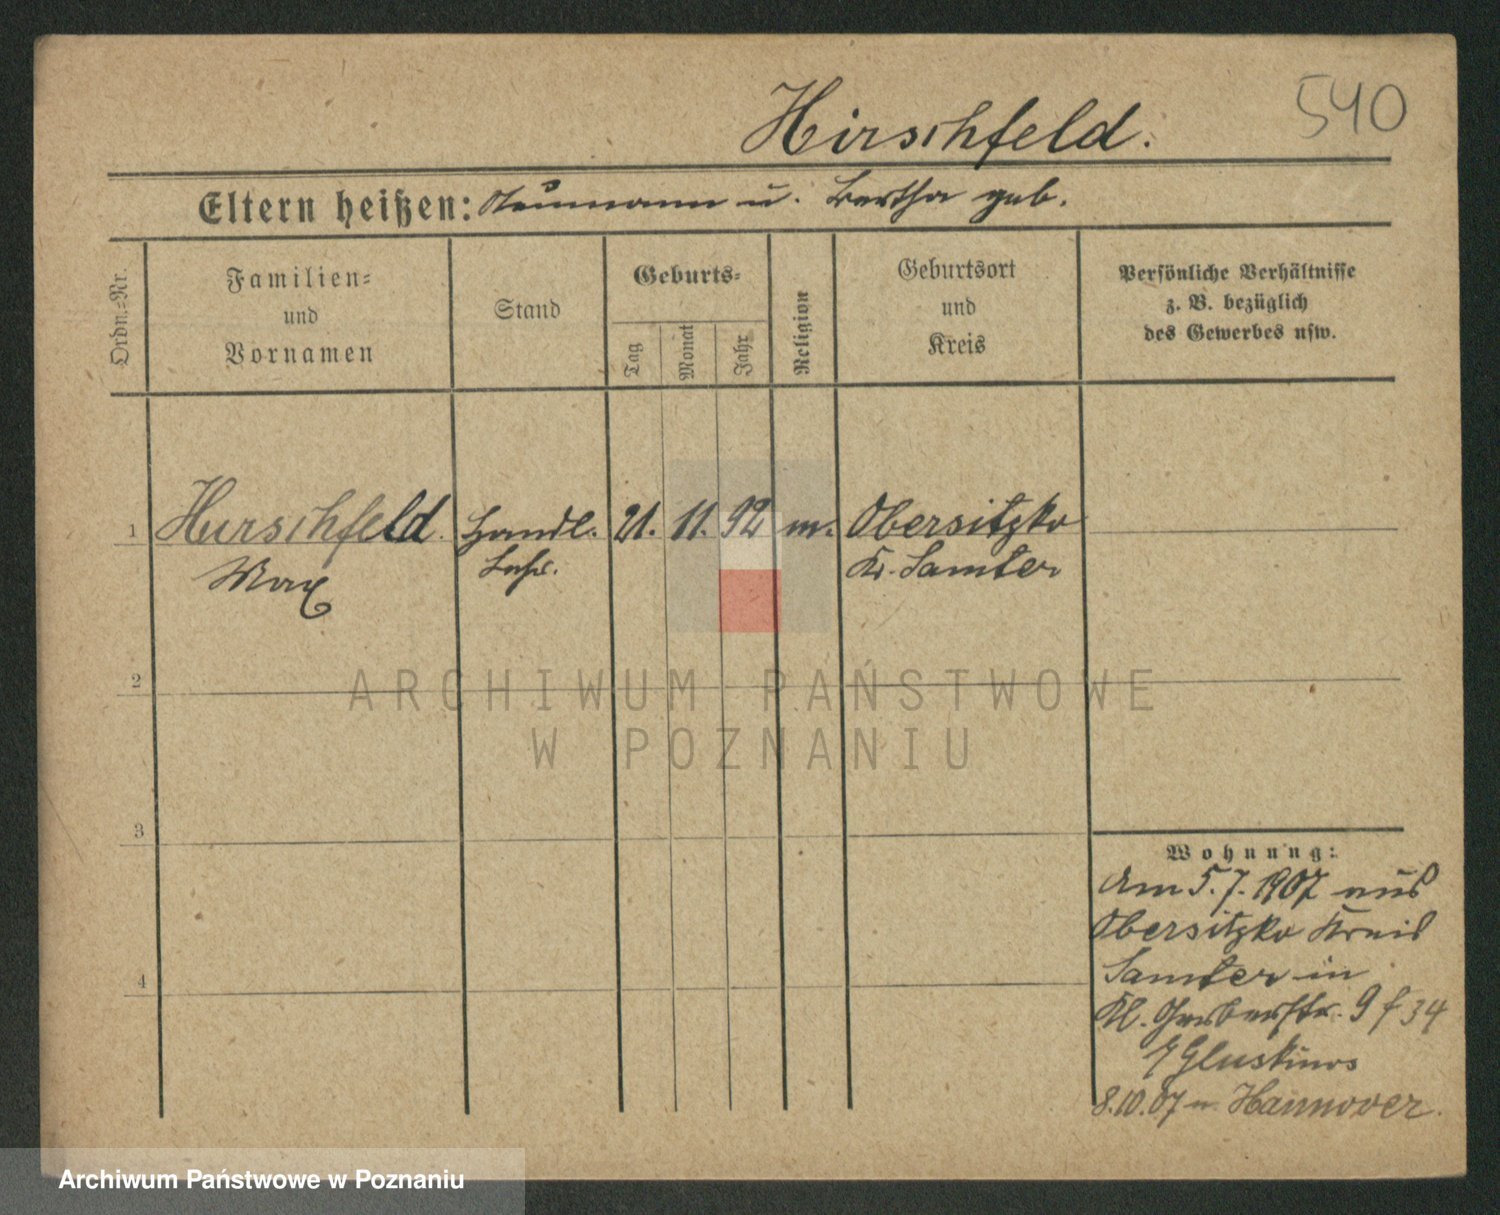 540
Hirschfeld.
Eltern heißen: Neumann u. Bertha geb.
Ordn.-Nr.
Familien-
und
Vornamen
Stand
Geburts-
Tag
Monat
Jahr
Religion
Geburtsort
und
Kreis
Persönliche Verhältnisse
z. B. bezüglich
des Gewerbes usw.
1 Hirschfeld. Handl. 21. 11. 92 m. Obersitzko
Max Lehr. Kr. Samter
2
3
4
ARCHIWUM PAŃSTWOWE
W POZNANIU
Wohnung:
Am 5.7.1907 aus
Obersitzko Kreis
Samter in
Kl. Gerberstr. 9 f 34
8.10.07 n. Hannover.
Archiwum Państwowe w Poznaniu